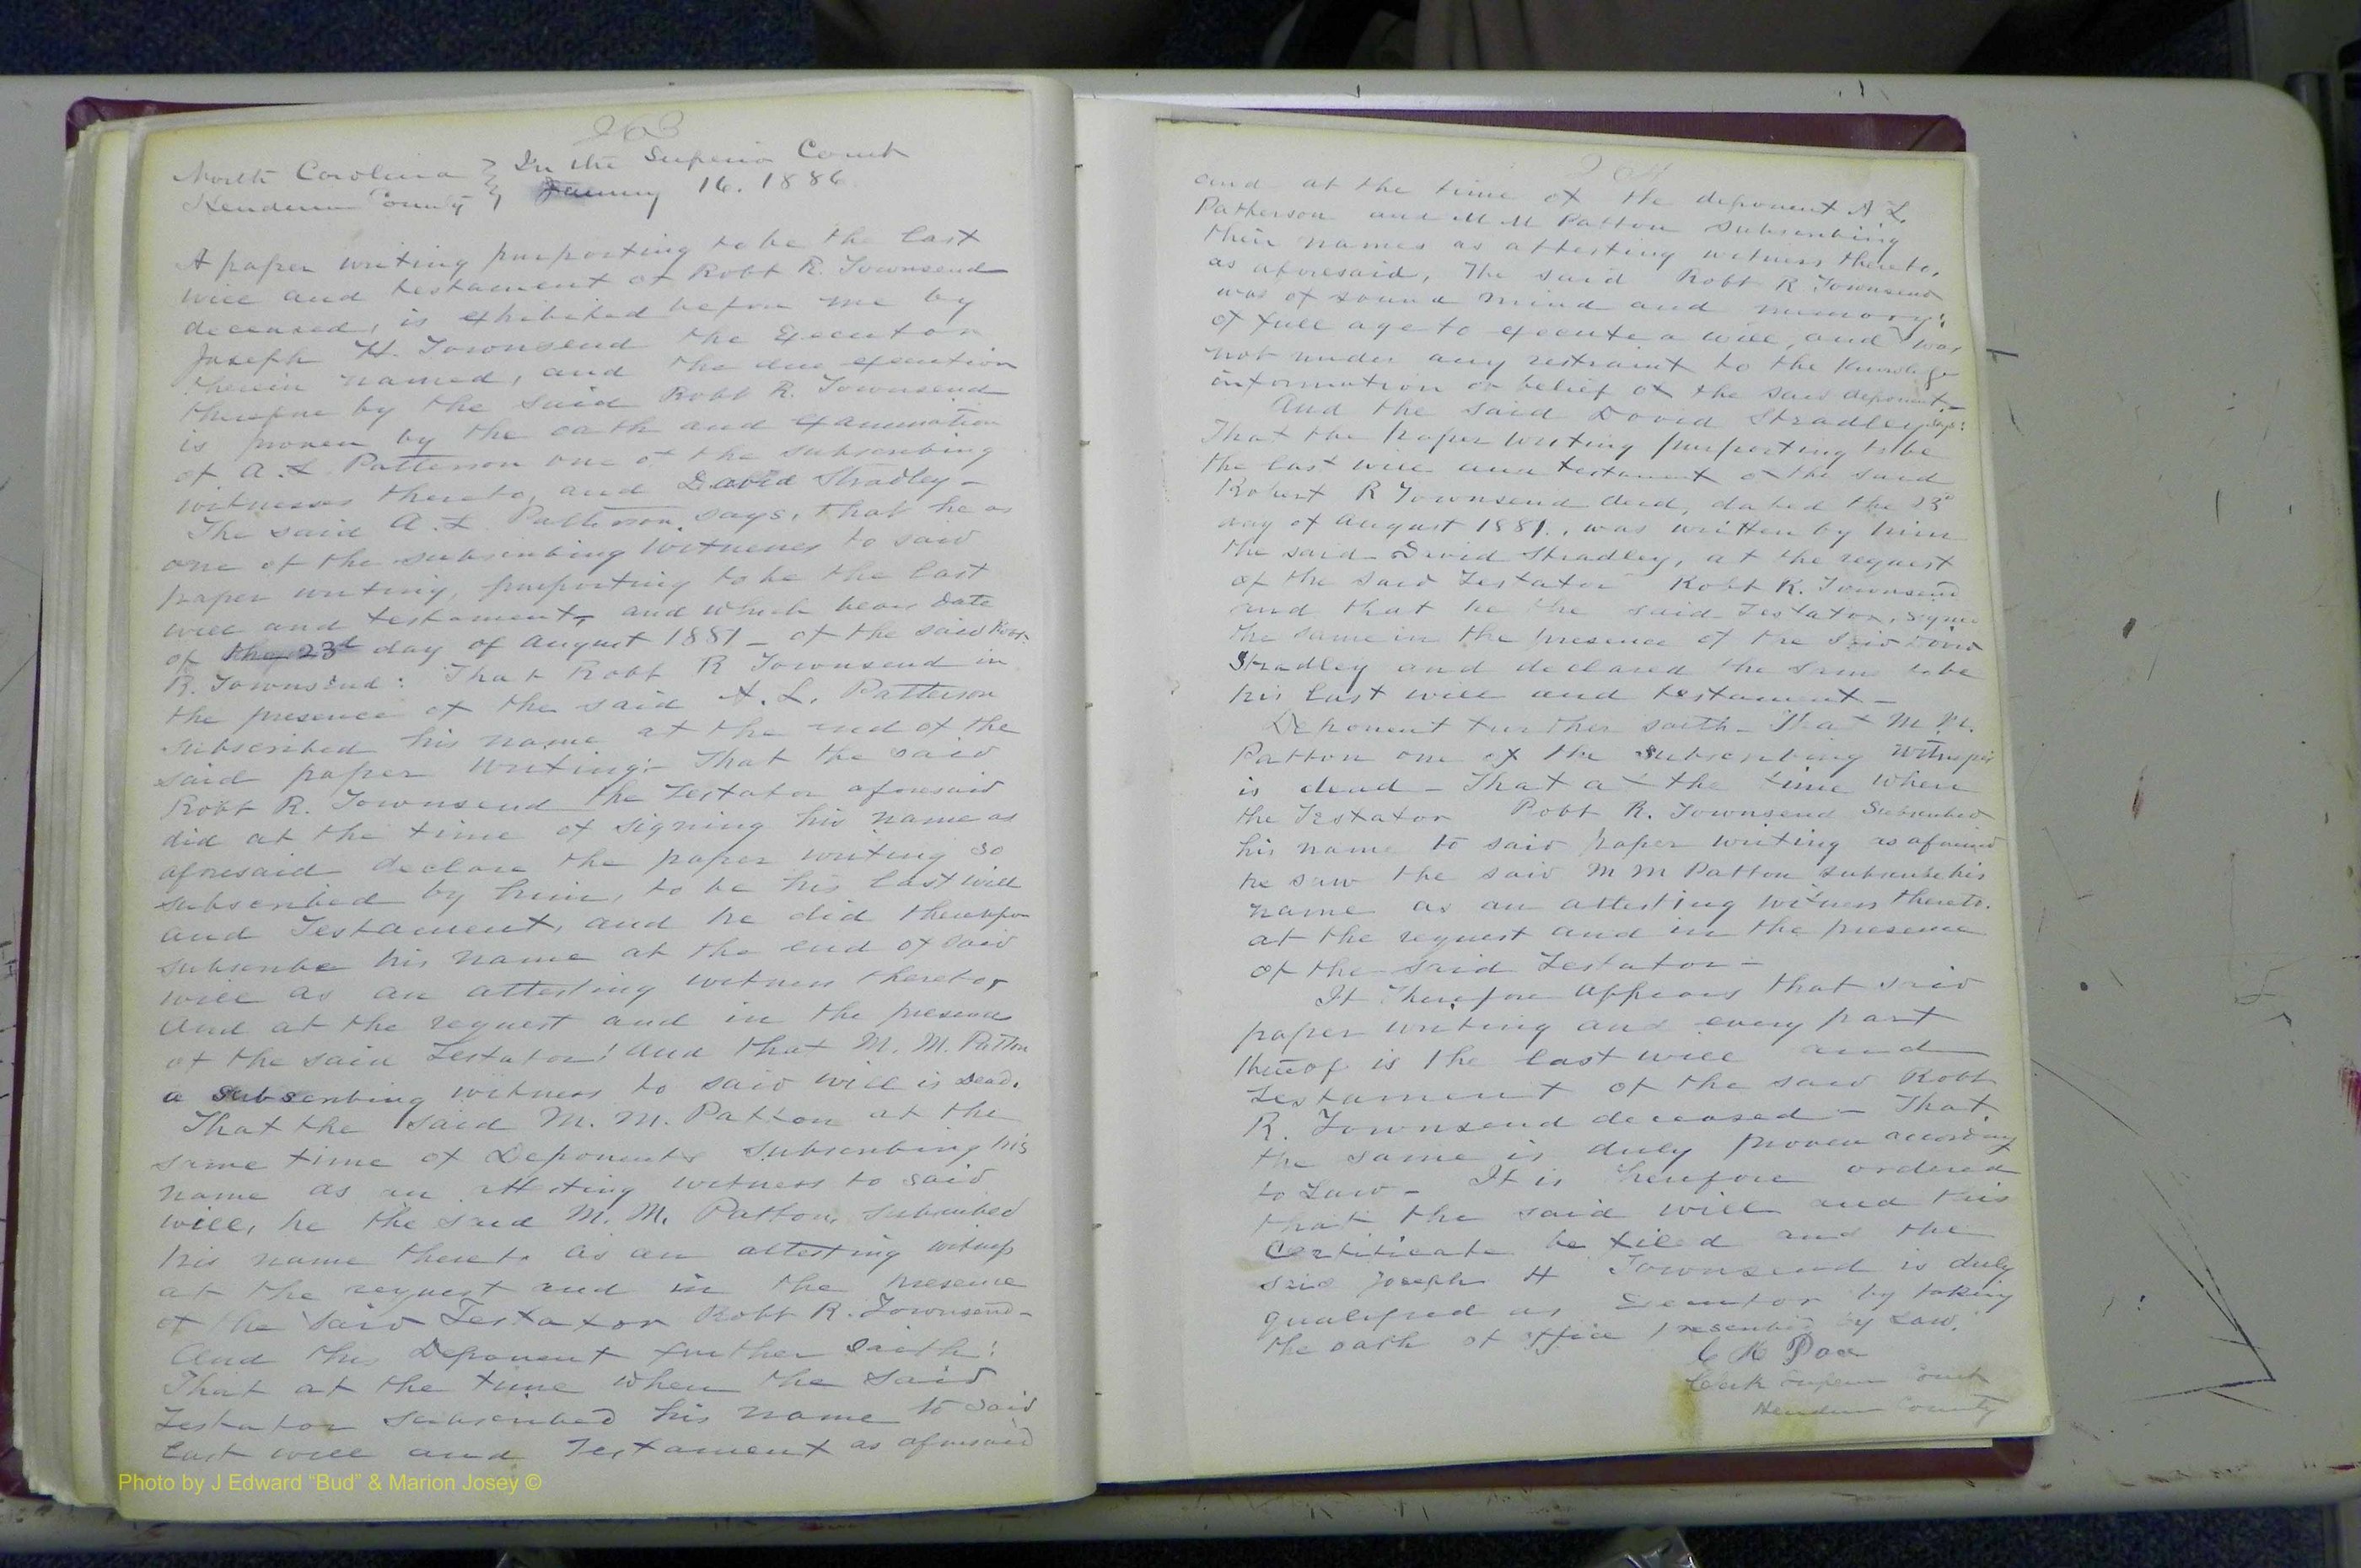 263
North Carolina } In the Superior Court
Henderson County } January 16. 1886.
A paper writing purporting to be the last
will and testament of Robt R. Townsend
deceased, is exhibited before me by
Joseph H. Townsend the Executor
therein named, and the due execution
thereof by the said Robt R. Townsend
is proven by the oath and examination
of A. L. Patterson one of the subscribing
witnesses thereto, and David Stradley -
The said A. L. Patterson, says, that he as
one of the subscribing witnesses to said
paper writing, purporting to be the last
will and testament, and which bears date
of the 23d day of August 1881 - of the said Robt
R. Townsend: That Robt R Townsend in
the presence of the said A. L. Patterson
subscribed his name at the end of the
said paper writing:- That the said
Robt R. Townsend the Testator aforesaid
did at the time of signing his name as
aforesaid declare the paper writing so
subscribed by him, to be his last will
and Testament, and he did thereupon
subscribe his name at the end of said
will as an attesting witness thereto,
And at the request and in the presence
of the said Testator: And that M. M. Patton
a subscribing witness to said will is Dead.
That the said M. M. Patton at the
same time of Deponents subscribing his
name as an attesting witness to said
will, he the said M. M. Patton, subscribed
his name thereto as an attesting witness
at the request and in the presence
of the said Testator Robt R. Townsend -
And this Deponent further Saith:
That at the time when the said
Testator subscribed his name to said
last will and Testament as aforesaid
264
and at the time of the deponent A L.
Patterson and M M Patton subscribing
their names as attesting witness thereto,
as aforesaid, The said Robt R Townsend
was of sound mind and memory;
of full age to execute a will, and was
not under any restraint to the knowledge
information or belief of the said deponent. -
And the said David Stradley says:
That the paper writing purporting to be
the last will and testament of the said
Robert R Townsend decd, dated the 23d
day of August 1881., was written by him
the said David Stradley, at the request
of the said Testator Robt R. Townsend
and that he the said Testator, signed
the same in the presence of the said David
Stradley and declared the same to be
his last will and testament -
Deponent further saith - That M. M.
Patton one of the subscribing witnesses
is dead - That at the time when
the Testator Robt R. Townsend Subscribed
his name to said paper writing as aforesaid
he saw the said M M Patton subscribe his
name as an attesting witness thereto.
at the request and in the presence
of the said Testator -
It Therefore Appears that said
paper writing and every part
thereof is the last will and
Testament of the said Robt
R. Townsend deceased - That
the same is duly proven according
to Law - It is Therefore ordered
that the said will and this
Certificate be filed and the
said Joseph H Townsend is duly
qualified as Executor by taking
the oath of office prescribed by Law.
C M Pace
Clerk Superior Court
Henderson County
Photo by J Edward “Bud” & Marion Josey ©